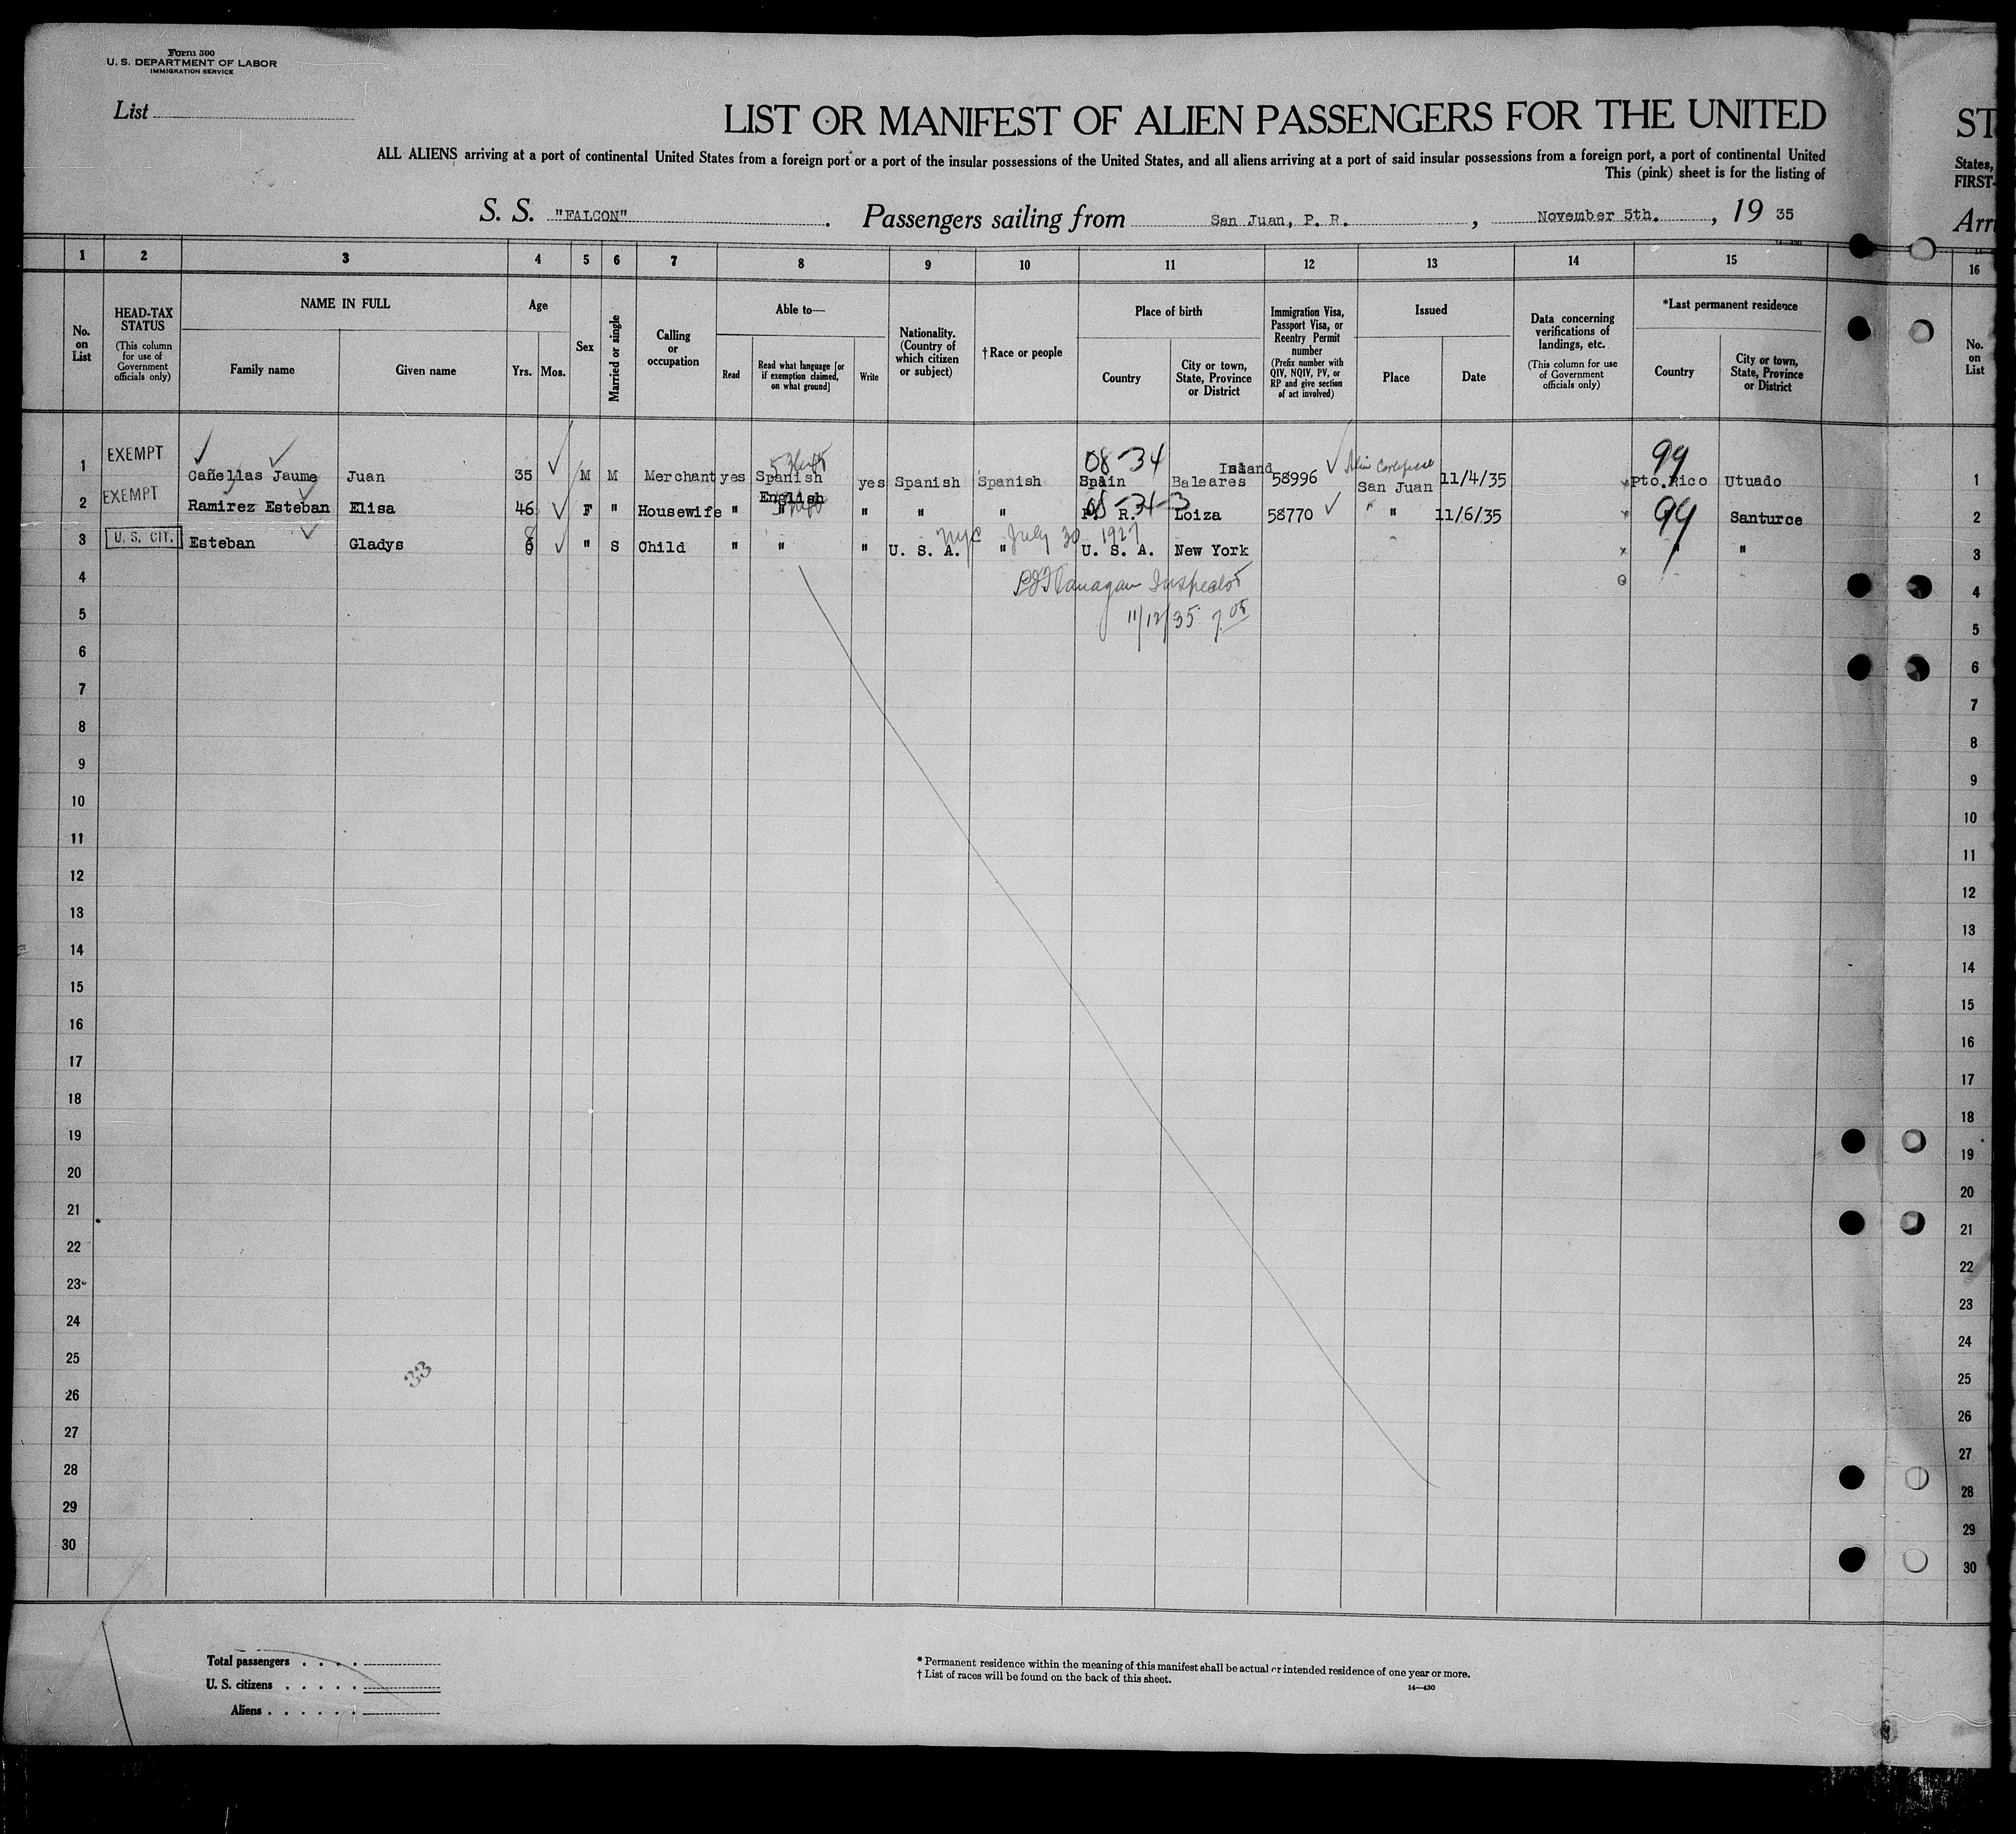 Form 500
U. S. DEPARTMENT OF LABOR
IMMIGRATION SERVICE
List
LIST OR MANIFEST OF ALIEN PASSENGERS FOR THE UNITED
ST
ALL ALIENS arriving at a port of continental United States from a foreign port or a port of the insular possessions of the United States, and all aliens arriving at a port of said insular possessions from a foreign port, a port of continental United
States,
This (pink) sheet is for the listing of
FIRST-
S. S. "FALCON". Passengers sailing from San Juan, P. R., November 5th., 19 35
Arri
1 2 3 4 5 6 7 8 9 10 11 12 13 14 15 16
No. on List
HEAD-TAX STATUS
(This column for use of Government officials only)
NAME IN FULL
Family name
Given name
Age
Yrs. Mos.
Sex
Married or single
Calling or occupation
Able to—
Read
Read what language [or if exemption claimed, on what ground]
Write
Nationality. (Country of which citizen or subject)
†Race or people
Place of birth
Country
City or town, State, Province or District
Immigration Visa, Passport Visa, or Reentry Permit number
(Prefix number with QIV, NQIV, PV, or RP and give section of act involved)
Issued
Place
Date
Data concerning verifications of landings, etc.
(This column for use of Government officials only)
*Last permanent residence
Country
City or town, State, Province or District
No. on List
08-34 99
1 EXEMPT Cañellas Jaume Juan 35 M M Merchant yes Spanish yes Spanish Spanish Spain Island Baleares 58996 San Juan 11/4/35 Pto. Rico Utuado 1
English
2 EXEMPT Ramirez Esteban Elisa 46 F " Housewife " " " " " P. R. Loiza 58770 " " 11/6/35 99 Santurce 2
8 NYC July 30 1927
3 U. S. CIT. Esteban Gladys " S Child " " " U. S. A. " U. S. A. New York " " 3
4 Flanagan Inspector 4
5 11/12/35 5
6 6
7 7
8 8
9 9
10 10
11 11
12 12
13 13
14 14
15 15
16 16
17 17
18 18
19 19
20 20
21 21
22 22
23 23
24 24
25 25
33
26 26
27 27
28 28
29 29
30 30
Total passengers . . . .
U. S. citizens . . . . .
Aliens . . . . . .
* Permanent residence within the meaning of this manifest shall be actual or intended residence of one year or more.
† List of races will be found on the back of this sheet.
14—430